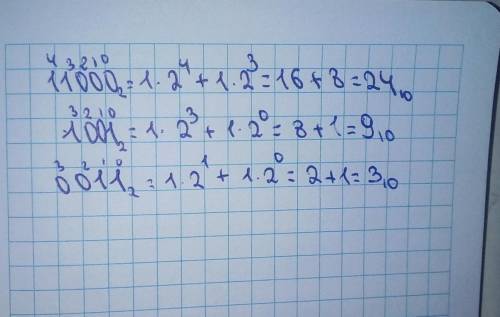 4 3 2 1 0
11000₂ = 1·2⁴ + 1·2³ = 16 + 8 = 24₁₀
3 2 1 0
1001₂ = 1·2³ + 1·2⁰ = 8 + 1 = 9₁₀
3 2 1 0
0011₂ = 1·2¹ + 1·2⁰ = 2 + 1 = 3₁₀